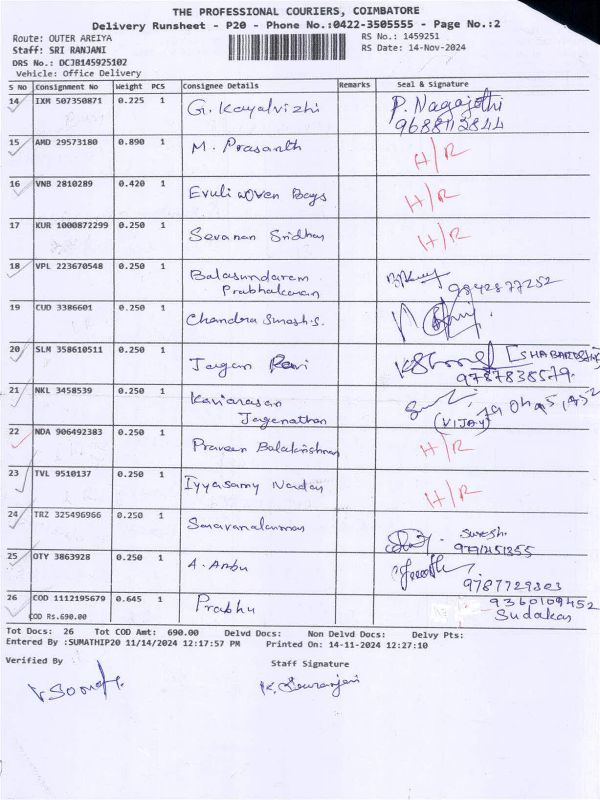 THE PROFESSIONAL COURIERS, COIMBATORE
Delivery Runsheet - P20 - Phone No.:0422-3505555 - Page No.:2
Route: OUTER AREIYA RS No.: 1459251
Staff: SRI RANJANI RS Date: 14-Nov-2024
DRS No.: DCJB145925102
Vehicle: Office Delivery
S No Consignment No Weight PCS Consignee Details Remarks Seal & Signature
14 IXM 507350871 0.225 1 G. Kayalvizhi P. Nagajothi
9688112844
15 AMD 29573180 0.890 1 M. Prasanth H/R
16 VNB 2810289 0.420 1 Evuli woven Bags H/R
17 KUR 1000872299 0.250 1 Sevanan Sridhar H/R
18 VPL 223670548 0.250 1 Balasundaram
Prabhakaran 9842877252
19 CUD 3386601 0.250 1 Chandra Sumesh.s.
20 SLM 358610511 0.250 1 Jagan Ravi
9787838579.
21 NKL 3458539 0.250 1 Kaviarasan
Jagenathan (VIJAY)
22 NDA 906492383 0.250 1 Praveen Balakrishnan H/R
23 TVL 9510137 0.250 1 Iyyasamy Nadar H/R
24 TRZ 325496966 0.250 1 Saravanakumar Suresh.
25 OTY 3863928 0.250 1 A. Anbu
9787729303
26 COD 1112195679 0.645 1 Prabhu 9360109452
COD Rs.690.00 Sudakar
Tot Docs: 26 Tot COD Amt: 690.00 Delvd Docs: Non Delvd Docs: Delvy Pts:
Entered By :SUMATHIP20 11/14/2024 12:17:57 PM Printed On: 14-11-2024 12:27:10
Verified By Staff Signature